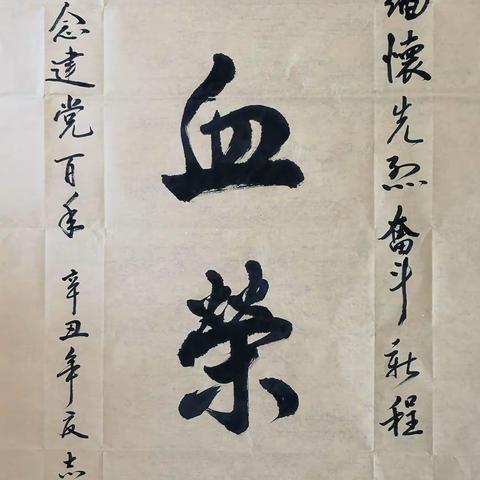 缅怀先烈奋斗新程
血
榮
念建党百年 辛丑年友志